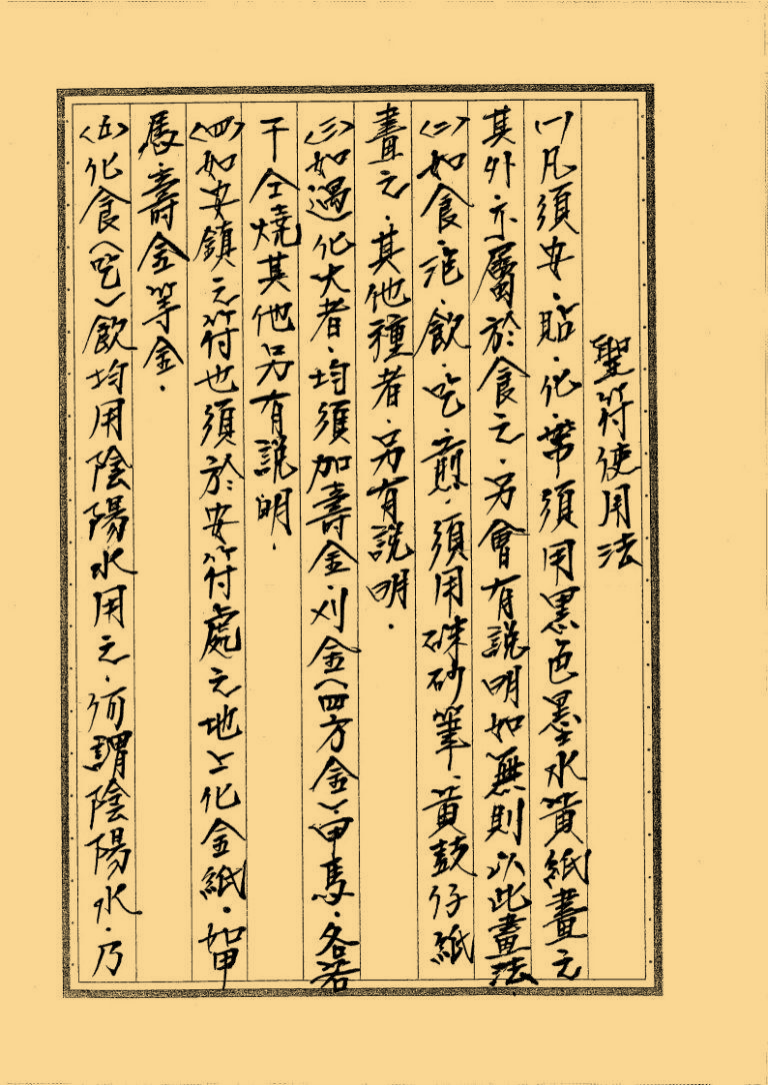 聖符使用法
㈠凡須安．貼．化．帶須用黑色墨水黃紙畫之
其外亦屬於食之．另會有說明如無則以此畫法
㈡如食．泡．飲．吃．煎．須用硃砂筆．黃鼓仔紙
畫之．其他種者．另有說明．
㈢如遇化火者．均須加壽金．刈金（四方金）甲馬．各若
干仝燒其他另有說明．
㈣如安鎮之符也須於安符處之地上化金紙．如甲
馬．壽金等金．
㈤化食（吃）飲均用陰陽水用之．何謂陰陽水．乃